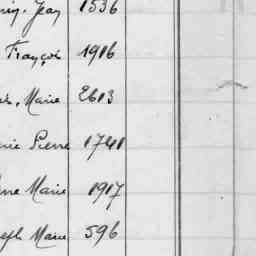 Jean 1536
François 1916
Marie 2613
Pierre 1741
Marie 1917
Marie 596